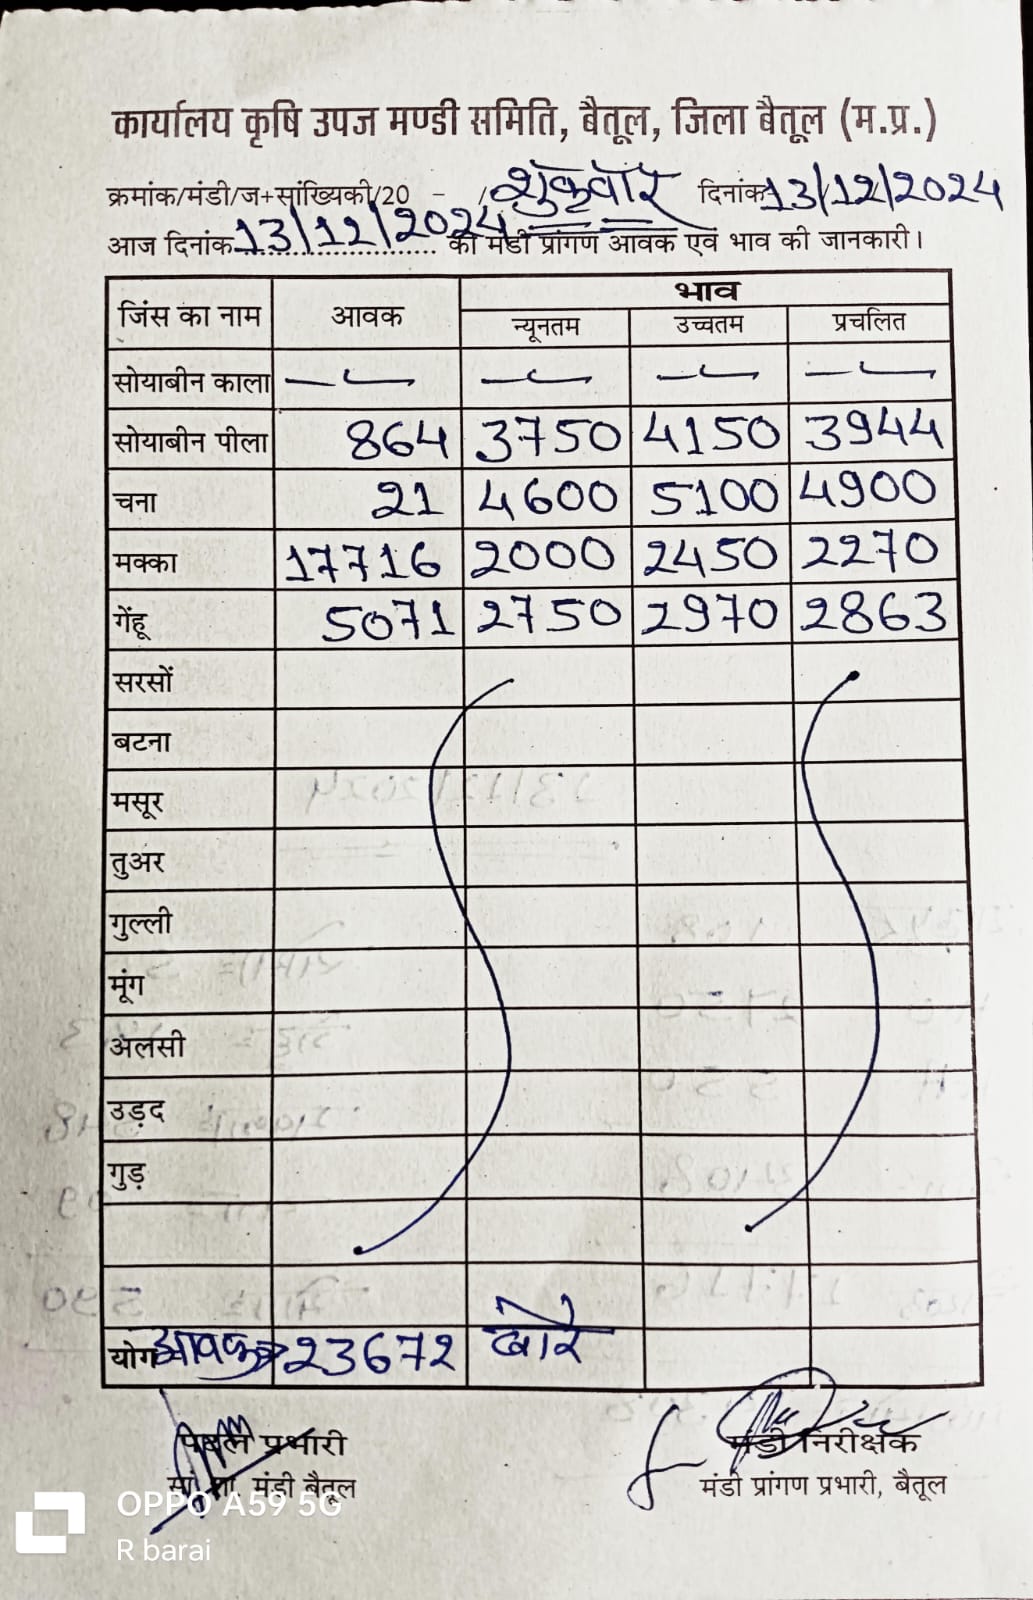 कार्यालय कृषि उपज मण्डी समिति, बैतूल, जिला बैतूल (म.प्र.)
क्रमांक/मंडी/ज+सांख्यिकी/20 - / शुक्रवार दिनांक 13/12/2024
आज दिनांक 13/12/2024 की मंडी प्रांगण आवक एवं भाव की जानकारी।
जिंस का नाम आवक भाव
न्यूनतम उच्चतम प्रचलित
सोयाबीन काला — — — —
सोयाबीन पीला 864 3750 4150 3944
चना 21 4600 5100 4900
मक्का 17716 2000 2450 2270
गेंहू 5071 2750 2970 2863
सरसों
बटना
मसूर
तुअर
गुल्ली
मूंग
अलसी
उड़द
गुड़
योग आवक 23672 बोरे
प्रभारी मंडी निरीक्षक
सां. शा. मंडी बैतूल मंडी प्रांगण प्रभारी, बैतूल
OPPO A59 5G
R barai